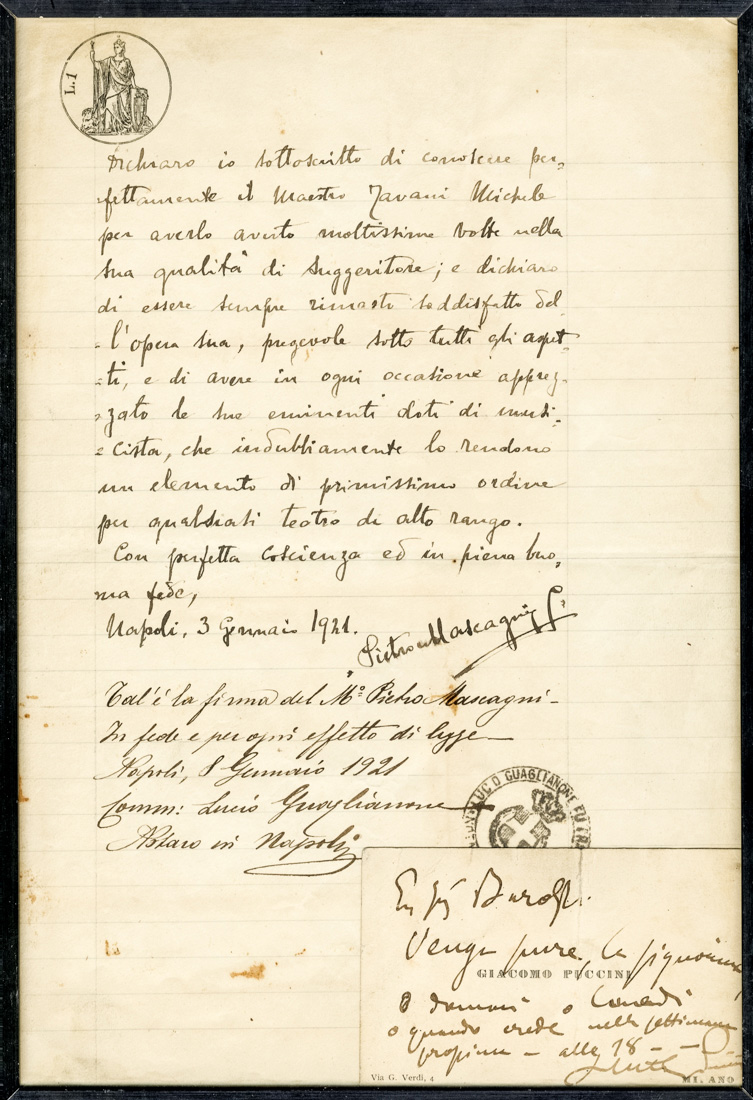 L. 1
Dichiaro io sottoscritto di conoscere per=
fettamente il Maestro Zavani Michele
per averlo avuto moltissime volte nella
sua qualità di Suggeritore; e dichiaro
di essere sempre rimasto soddisfatto del=
=l'opera sua, pregevole sotto tutti gli aspet=
=ti, e di avere in ogni occasione apprez=
=zato le sue eminenti doti di musi=
=cista, che indubbiamente lo rendono
un elemento di primissimo ordine
per qualsiasi teatro di alto rango.
Con perfetta coscienza ed in piena buo=
na fede,
Napoli, 3 Gennaio 1921.
Pietro Mascagni
Tal'é la firma del M.o Pietro Mascagni -
In fede e per ogni effetto di legge -
Napoli, 8 Gennaio 1921
Comm: Lucio Guaglianone
Notaro in Napoli
GUAGLIANONE FU
Venga pure, la signorina
GIACOMO PUCCINI
o domani o Lunedì
o quando crede nella settimana
prossima - alle 18 -
Via G. Verdi, 4
MILANO